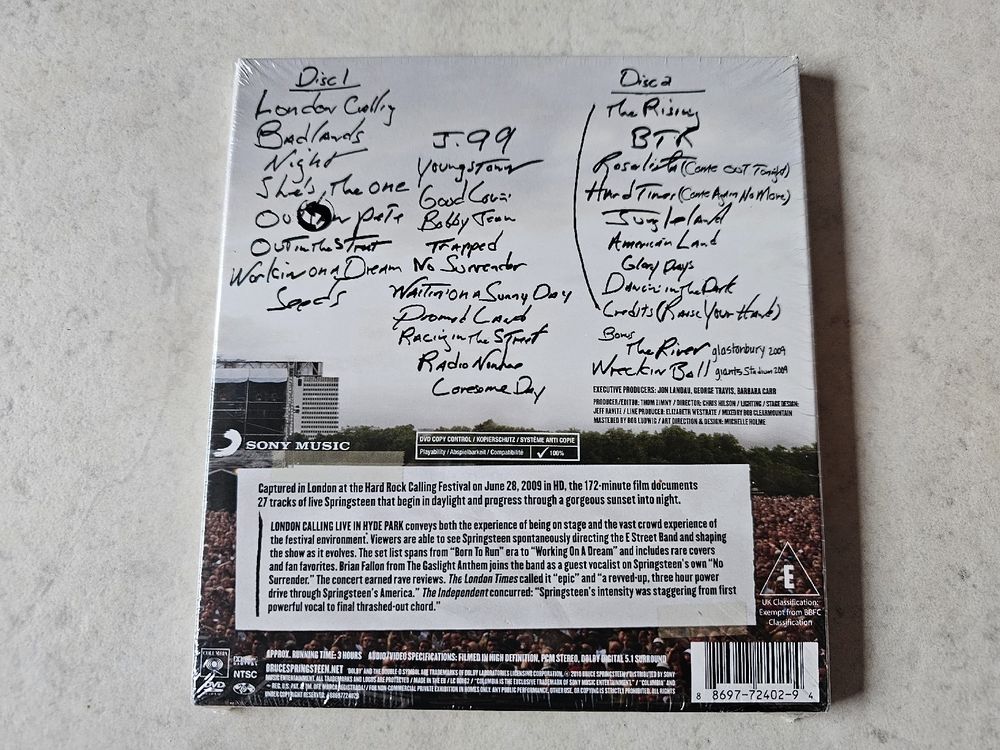 Disc 1
London Calling
Badlands
Night
She's the one
Outlaw Pete
Out in the Street
Workin on a Dream
Seeds
J.99
Youngstown
Good Lovin
Bobby Jean
Trapped
No Surrender
Waitin' on a Sunny Day
Promised Land
Racing in the Street
Radio Nowhere
Lonesome Day
Disc 2
The Rising
BTR
Rosalita (Come Out Tonight)
Hard Times (Come Again No More)
Jungleland
American Land
Glory Days
Dancin' in the Dark
Credits (Raise Your Hand)
Bonus
The River glastonbury 2009
Wreckin Ball giants stadium 2009
EXECUTIVE PRODUCERS: JON LANDAU, GEORGE TRAVIS, BARBARA CARR
PRODUCER/EDITOR: THOM ZIMNY / DIRECTOR: CHRIS HILSON / LIGHTING / STAGE DESIGN:
JEFF RAVITZ / LINE PRODUCER: ELIZABETH WESTRATE / MIXED BY BOB CLEARMOUNTAIN
MASTERED BY BOB LUDWIG / ART DIRECTION & DESIGN: MICHELLE HOLME
SONY MUSIC
DVD COPY CONTROL / KOPIERSCHUTZ / SYSTÈME ANTI COPIE
Playability / Abspielbarkeit / Compatibilité ✓ 100%
Captured in London at the Hard Rock Calling Festival on June 28, 2009 in HD, the 172-minute film documents
27 tracks of live Springsteen that begin in daylight and progress through a gorgeous sunset into night.
LONDON CALLING LIVE IN HYDE PARK conveys both the experience of being on stage and the vast crowd experience of
the festival environment. Viewers are able to see Springsteen spontaneously directing the E Street Band and shaping
the show as it evolves. The set list spans from “Born To Run” era to “Working On A Dream” and includes rare covers
and fan favorites. Brian Fallon from The Gaslight Anthem joins the band as a guest vocalist on Springsteen's own “No
Surrender.” The concert earned rave reviews. The London Times called it “epic” and “a revved-up, three hour power
drive through Springsteen's America.” The Independent concurred: “Springsteen's intensity was staggering from first
powerful vocal to final thrashed-out chord.”
E
UK Classification:
Exempt from BBFC
Classification
COLUMBIA
DVD
NTSC
APPROX. RUNNING TIME: 3 HOURS AUDIO/VIDEO SPECIFICATIONS: FILMED IN HIGH DEFINITION, PCM STEREO, DOLBY DIGITAL 5.1 SURROUND
BRUCESPRINGSTEEN.NET
8 8697-72402-9 4